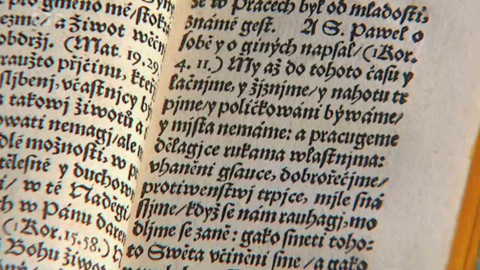 giného mě/
ezme/a Žiwot wěčn
obdrží. (Mat. 19. 29.
raužto přjčinu, kte
sljbeni, včastnjcy by
z takowj životů a
owati nemagj/ale
dlé možnosti, w p
tělesné y duchow
j/ w té Naděgi
ch w Pánu daren
Kor. 15. 58.)
Bohu život
že w Pracech byl od mladosti,
známé gest. A S. Pawel o
sobě y o giných napsal/(1 Kor.
4. 11.) My až do tohoto času y
lačnjme/ y žjznjme/y nahotu tr
pjme/y poličkowáni býwáme/
y mjsta nemáme: a pracugeme
dělagjce rukama wlastnjma:
vhaněni gsauce, dobrořečjme/
protiwenstwj trpjce, mjle sná
ssjme/když se nám rauhagj, mo
dljme se zaně: gako smeti toho-
to Swěta včiněni sme/a gako